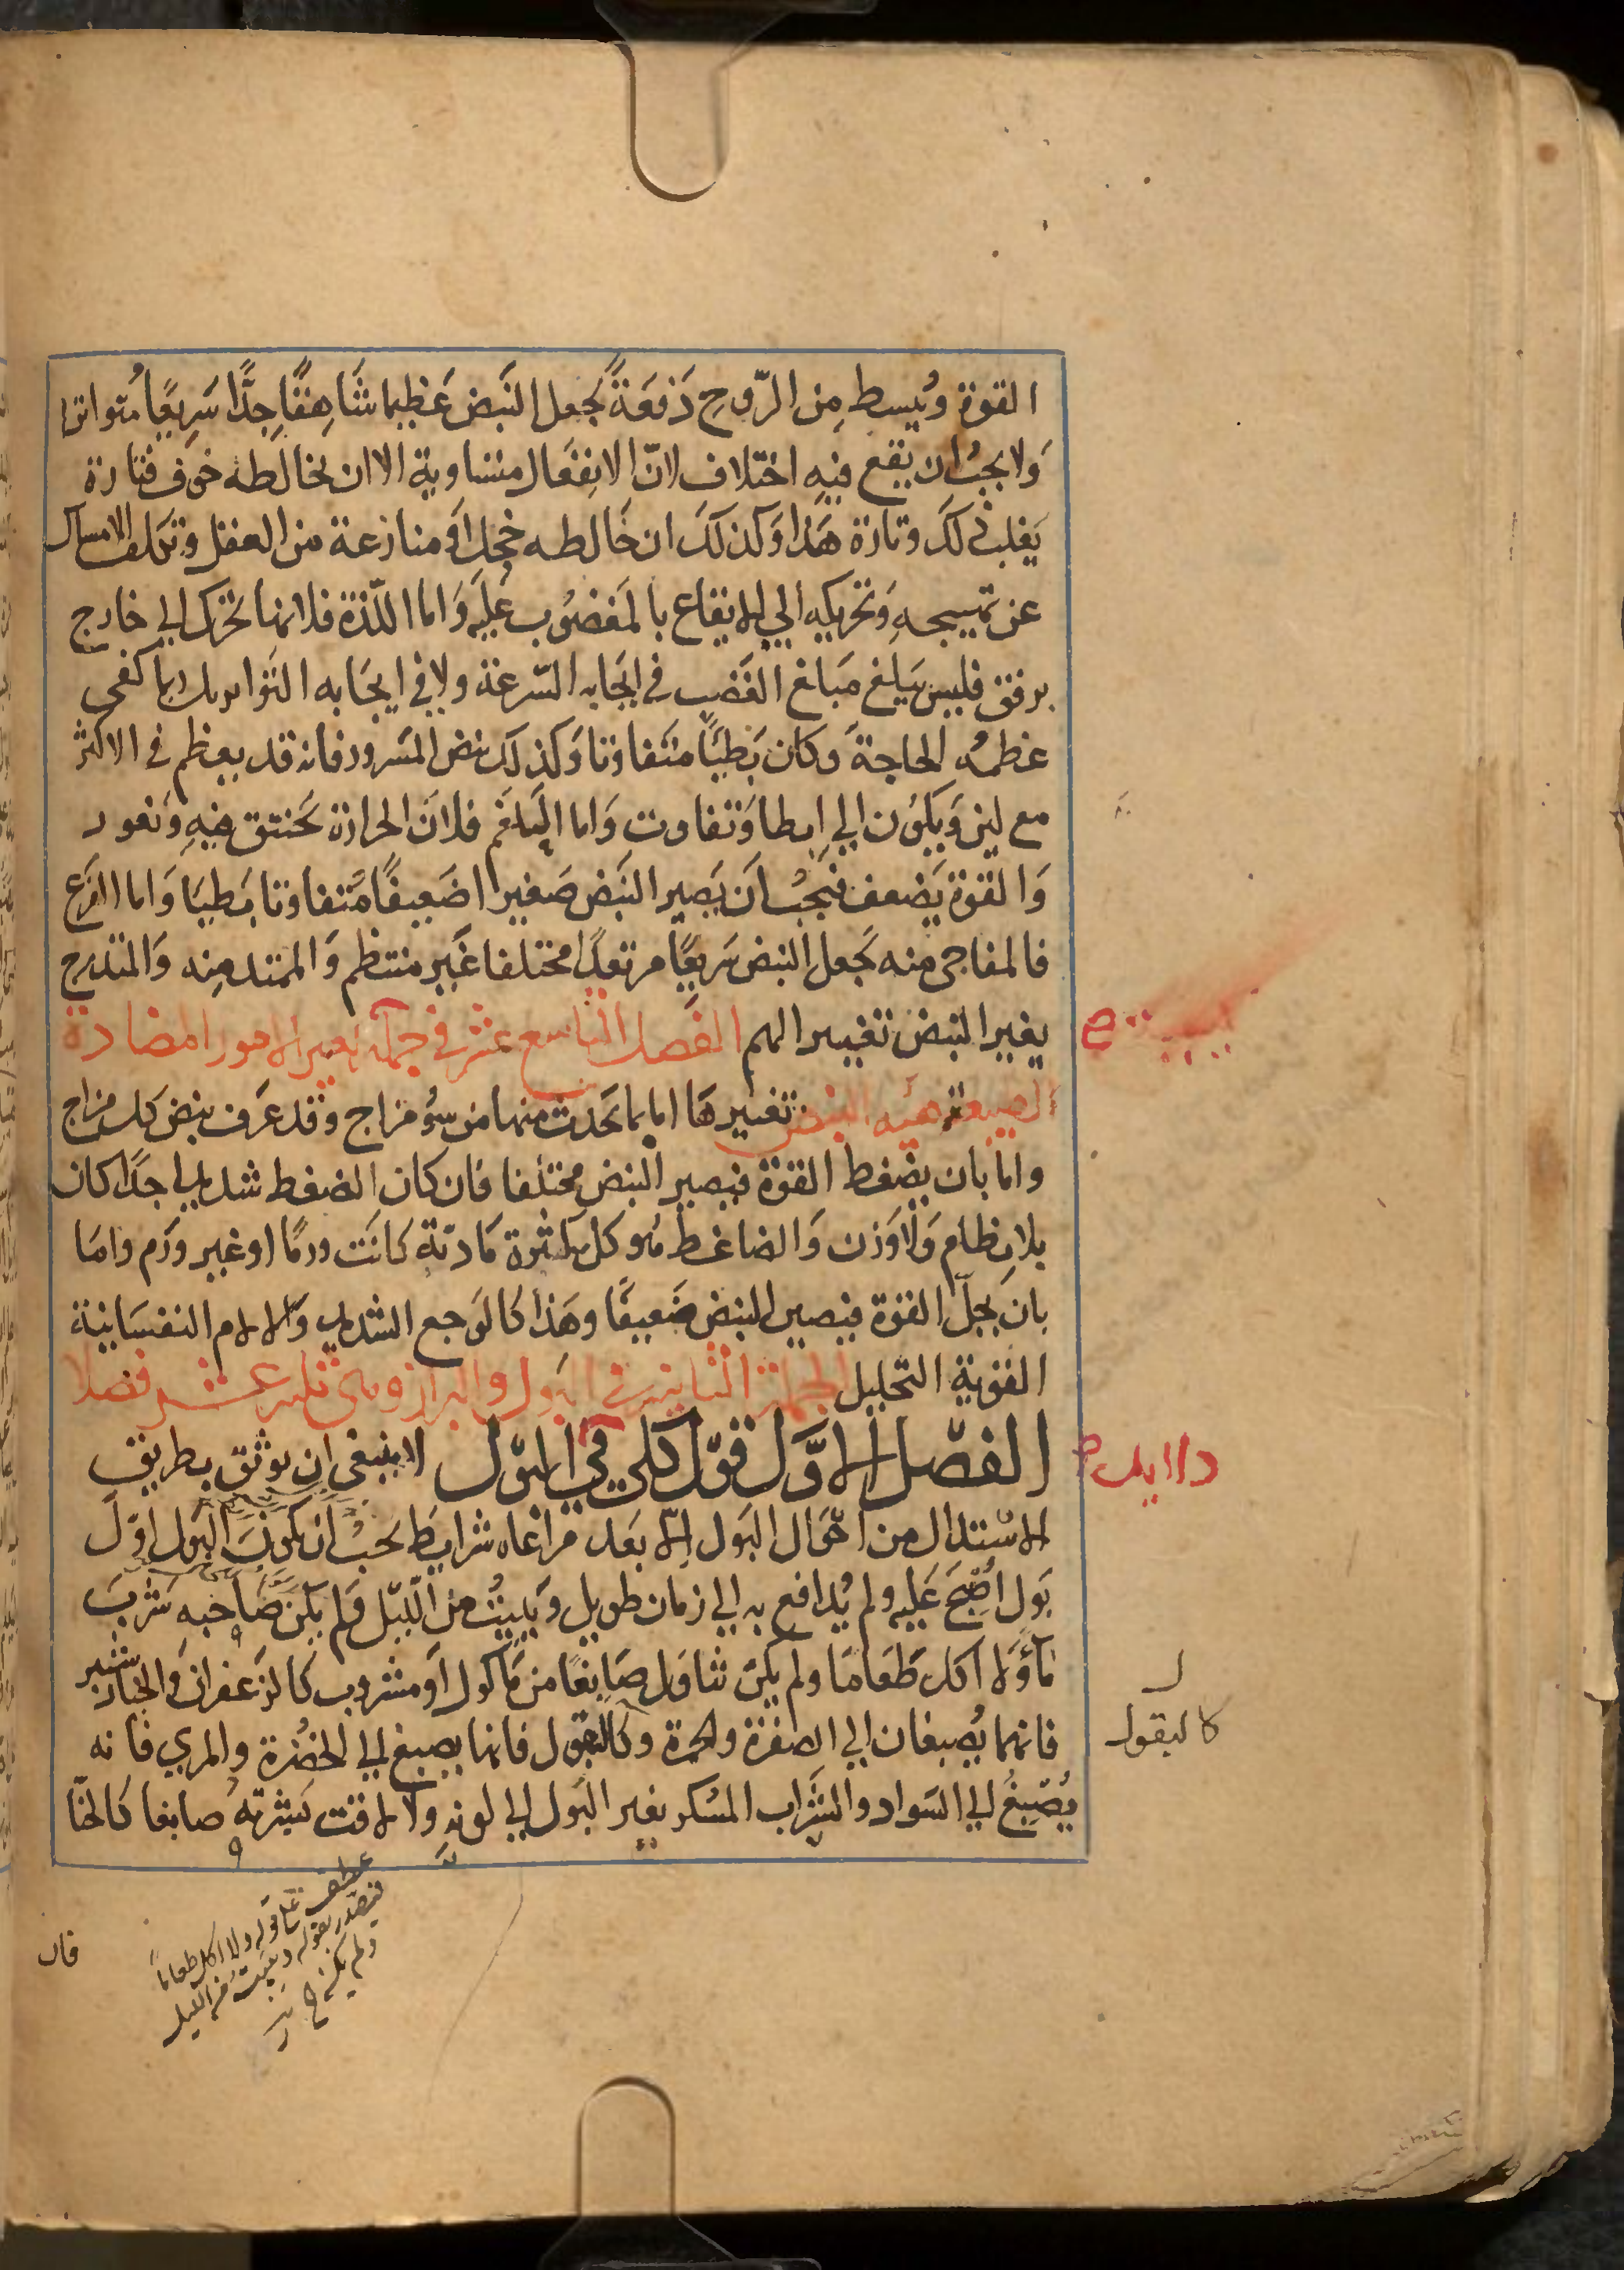 القوة ويبسط من الروح دفعة يجعل النبض عظيما شاهقا جدًا سريعًا متواترا
ولا يجب ان يقع فيه اختلاف لانّ الانفعال متساوية الا ان يخالطه خوف فتارة
يغلب ذلك وتارة هذا وكذلك ان خالطه خجل او منازعة من العقل وتكلف الامساك
عن تهييجه وتحريكه الي الايقاع بالمغضوب عليه واما اللذة فلانها تحرك الي خارج
برفق فليس يبلغ مبلغ الغضب في ايجابه السرعة ولا في ايجابه التواتر بل ربما كفى
عظمه الحاجة وكان بطيًا متفاوتا وكذلك نبض المسرور فانه قد يعظم في الاكثر
مع لين ويكون الي ابطا وتفاوت واما الغم فلان الحرارة تختنق فيه وتغور
والقوة يضعف فيجب ان يصير النبض صغيرا ضعيفًا متفاوتا بطيا واما الفزع
فالمفاجي منه يجعل النبض سريعًا مرتعدًا مختلفا غير منتظم والممتد منه والمتدرج
يغير النبض تغيير الهم الفصل التاسع عشر في جملة تغيير الامور المضادة
الطبيعة هيه النبض تغييرها اما بما يحدث منها من سؤ مزاج وقد عرف نبض كل مزاج
واما بان يضغط القوة فيصير النبض مختلفا فان كان الضغط شديدا جدًا كان
بلا نظام ولا وزن والضاغط هو كل كثرة مادية كانت ورمًا او غير ورم واما
بان يحلّ القوة فيصير النبض ضعيفًا وهذا كالوجع الشديد والالام النفسانية
القوية التحليل الجملة الثانية في البول والبراز وهي ثلثة عشر فصلا
الفصل الاوّل قول كلي في البول لا ينبغي ان يوثق بطريق
الاستدلال من احوال البول الا بعد مراعاه شرايط يجب ان يكون البول اوّل
بول اصبح عليه ولم يدافع به الي زمان طويل ويبيت من الليل ولم يكن صاحبه شرب
ماؤ ولا اكل طعاما ولم يكن تناول صابغا من ماكول او مشروب كالزعفران والخيارشنبر
فانهما يصبغان الي الصفرة والحمرة وكالبقول فانها يصبغ الي الخضرة والمري فانه
يصبغ الي السواد والشراب المسكر يغير البول الي لونه ولا لاقت بشرته صابغا كالحنّا
كالبقول
عطف على قوله ولا اكل طعامًا
بقوله ويبيت من الليل
ولم يكن
قال